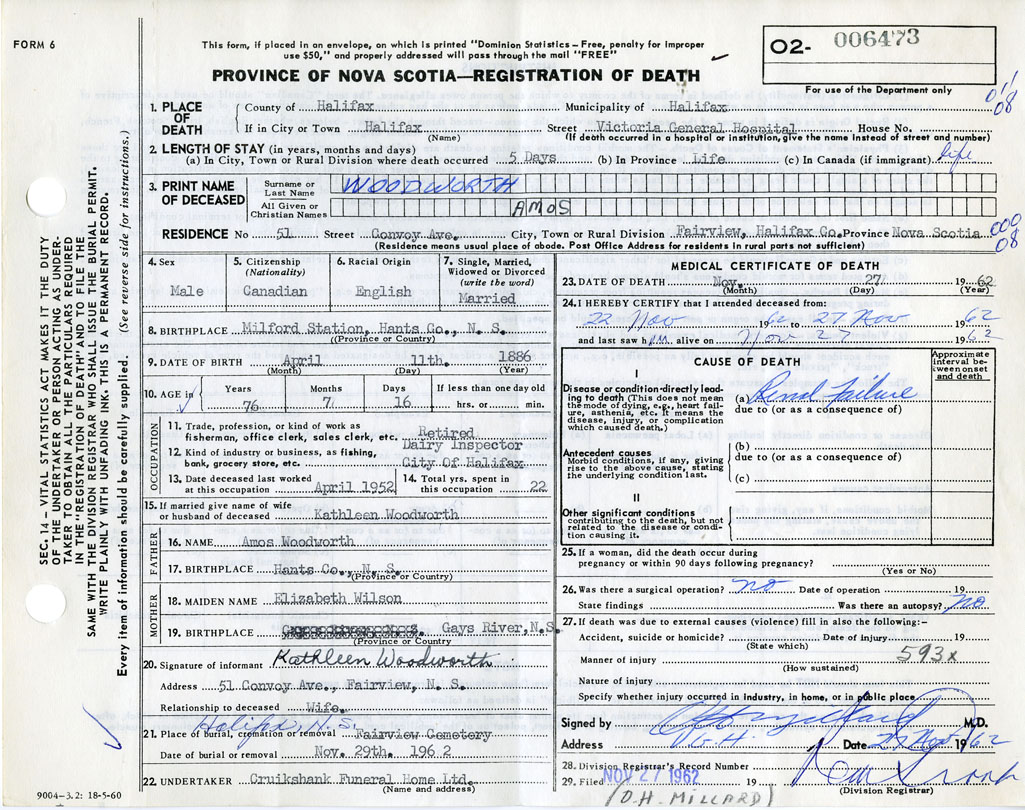 FORM 6
This form, if placed in an envelope, on which is printed "Dominion Statistics – Free, penalty for improper
use $50," and properly addressed will pass through the mail "FREE"
PROVINCE OF NOVA SCOTIA—REGISTRATION OF DEATH
O2- 006473
For use of the Department only
1. PLACE OF DEATH
County of Halifax Municipality of Halifax
If in City or Town Halifax Street Victoria General Hospital House No.
(Name) (If death occurred in a hospital or institution, give the name instead of street and number)
2. LENGTH OF STAY (in years, months and days)
(a) In City, Town or Rural Division where death occurred 5 Days (b) In Province Life (c) In Canada (if immigrant) Life
3. PRINT NAME OF DECEASED
Surname or Last Name WOODWORTH
All Given or Christian Names AMOS
RESIDENCE No 51 Street Convoy Ave. City, Town or Rural Division Fairview, Halifax Co. Province Nova Scotia
(Residence means usual place of abode. Post Office Address for residents in rural parts not sufficient)
4. Sex
Male
5. Citizenship (Nationality)
Canadian
6. Racial Origin
English
7. Single, Married, Widowed or Divorced (write the word)
Married
8. BIRTHPLACE Milford Station, Hants Co., N. S.
((Province or Country)
9. DATE OF BIRTH April 11th. 1886
(Month) (Day) (Year)
10. AGE in Years Months Days If less than one day old
76 7 16 hrs. or min.
OCCUPATION
11. Trade, profession, or kind of work as
fisherman, office clerk, sales clerk, etc. Retired
Dairy Inspector
12. Kind of industry or business, as fishing,
bank, grocery store, etc. City Of Halifax
13. Date deceased last worked
at this occupation April 1952
14. Total yrs. spent in
this occupation 22
15. If married give name of wife
or husband of deceased Kathleen Woodworth
FATHER
16. NAME Amos Woodworth
17. BIRTHPLACE Hants Co., N. S.
(Province or Country)
MOTHER
18. MAIDEN NAME Elizabeth Wilson
19. BIRTHPLACE Gays River, N.S.
(Province or Country)
20. Signature of informant Kathleen Woodworth
Address 51 Convoy Ave., Fairview, N. S.
Relationship to deceased Wife.
Halifax, N.S.
21. Place of burial, cremation or removal Fairview Cemetery
Date of burial or removal Nov. 29th. 196 2
22. UNDERTAKER Cruikshank Funeral Home Ltd.
(Name and address)
MEDICAL CERTIFICATE OF DEATH
23. DATE OF DEATH Nov. 27 1962
(Month) (Day) (Year)
24. I HEREBY CERTIFY that I attended deceased from:
22 Nov 1962 to 27 Nov 1962
and last saw him alive on Nov 27 1962
CAUSE OF DEATH
Approximate interval between onset and death
I
Disease or condition directly leading to death (This does not mean
the mode of dying, e.g., heart failure, asthenia, etc. It means the
disease, injury, or complication
which caused death.)
(a) Renal failure
due to (or as a consequence of)
Antecedent causes
Morbid conditions, if any, giving
rise to the above cause, stating
the underlying condition last.
(b)
due to (or as a consequence of)
(c)
II
Other significant conditions
contributing to the death, but not
related to the disease or condition causing it.
25. If a woman, did the death occur during
pregnancy or within 90 days following pregnancy?
(Yes or No)
26. Was there a surgical operation? no Date of operation 19
State findings Was there an autopsy? no
27. If death was due to external causes (violence) fill in also the following:–
Accident, suicide or homicide? Date of injury 19
(State which)
Manner of injury 593x
(How sustained)
Nature of injury
Specify whether injury occurred in industry, in home, or in public place
Signed by M.D.
Address V.G.H Date 27 Nov 1962
28. Division Registrar's Record Number
29. Filed NOV 27 1962 19
(Division Registrar)
(O.H. MILLARD)
SEC. 14 – VITAL STATISTICS ACT MAKES IT THE DUTY
OF THE UNDERTAKER OR PERSON ACTING AS UNDER-
TAKER TO OBTAIN ALL THE PARTICULARS REQUIRED
IN THE "REGISTRATION OF DEATH" AND TO FILE THE
SAME WITH THE DIVISION REGISTRAR WHO SHALL ISSUE THE BURIAL PERMIT.
WRITE PLAINLY WITH UNFADING INK. THIS IS A PERMANENT RECORD.
Every item of information should be carefully supplied. (See reverse side for instructions.)
9004–3.2: 18-5-60